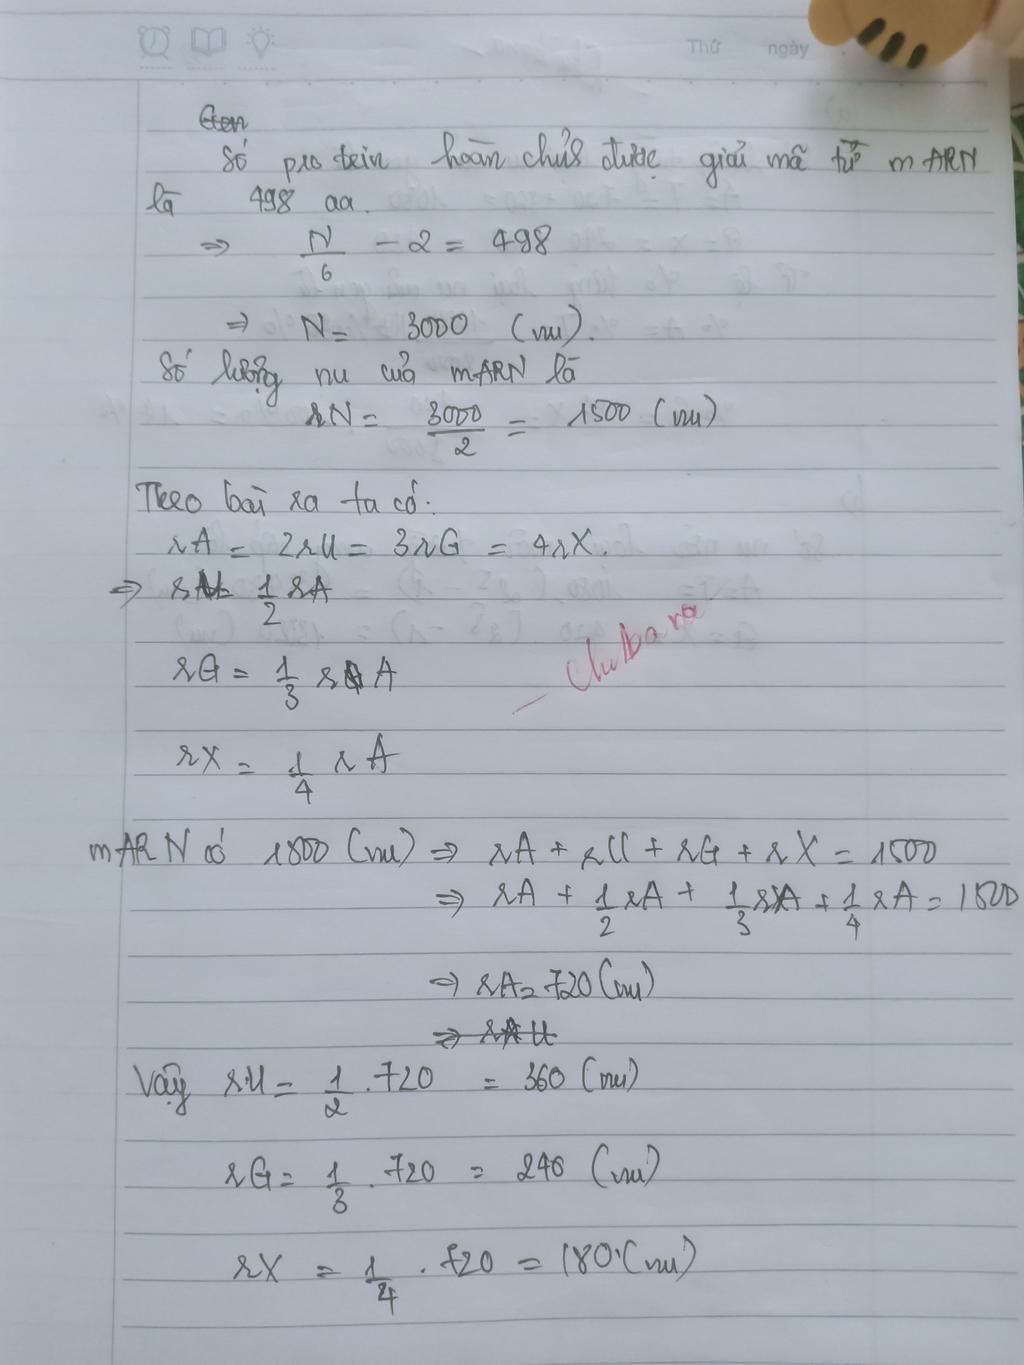 Thứ ngày
Gen
Số protein hoàn chỉnh được giải mã từ mARN
là 498 aa.
=> N/6 - 2 = 498
=> N = 3000 (nu).
Số lượng nu của mARN là
rN = 3000/2 = 1500 (nu)
Theo bài ra ta có:
rA = 2rU = 3rG = 4rX.
=> rU = 1/2 rA
rG = 1/3 rA
rX = 1/4 rA
mARN có 1500 (nu) => rA + rU + rG + rX = 1500
=> rA + 1/2 rA + 1/3 rA + 1/4 rA = 1500
=> rA = 720 (nu)
=> rU
Vậy rU = 1/2 . 720 = 360 (nu)
rG = 1/3 . 720 = 240 (nu)
rX = 1/4 . 720 = 180 (nu)